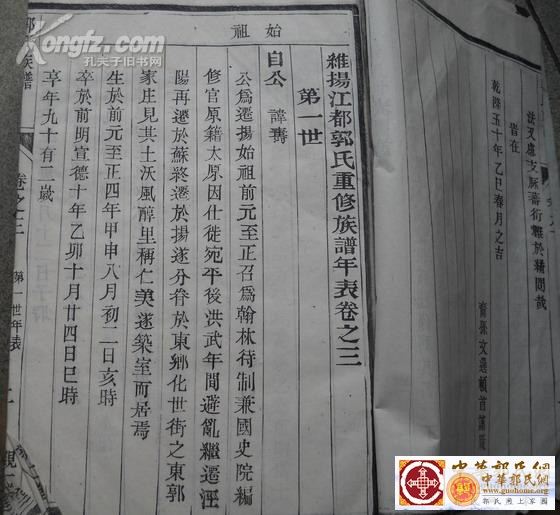 法又虔支脈蕃衍難於稽問哉
皆在
乾隆五十年乙巳春月之吉
裔孫文選頓首謹
始祖
維揚江都郭氏重修族譜年表卷之三
第一世
自公 諱壽
公爲遷揚始祖前元至正召爲翰林待制兼國史院編
修官原籍太原因仕徙宛平後洪武年間避亂繼遷涇
陽再遷於蘇終遷於揚遂分眷於東鄉化世街之東郭
家庄見其土沃風醇里稱仁美遂築室而居焉
生於前元至正四年甲申八月初二日亥時
卒於前明宣德十年乙卯十月廿四日巳時
享年九十有二歲
族譜
卷之三
第一世年表
kongfz.com
孔夫子旧书网
中华郭氏网
www.guohome.org
郭氏网上家园